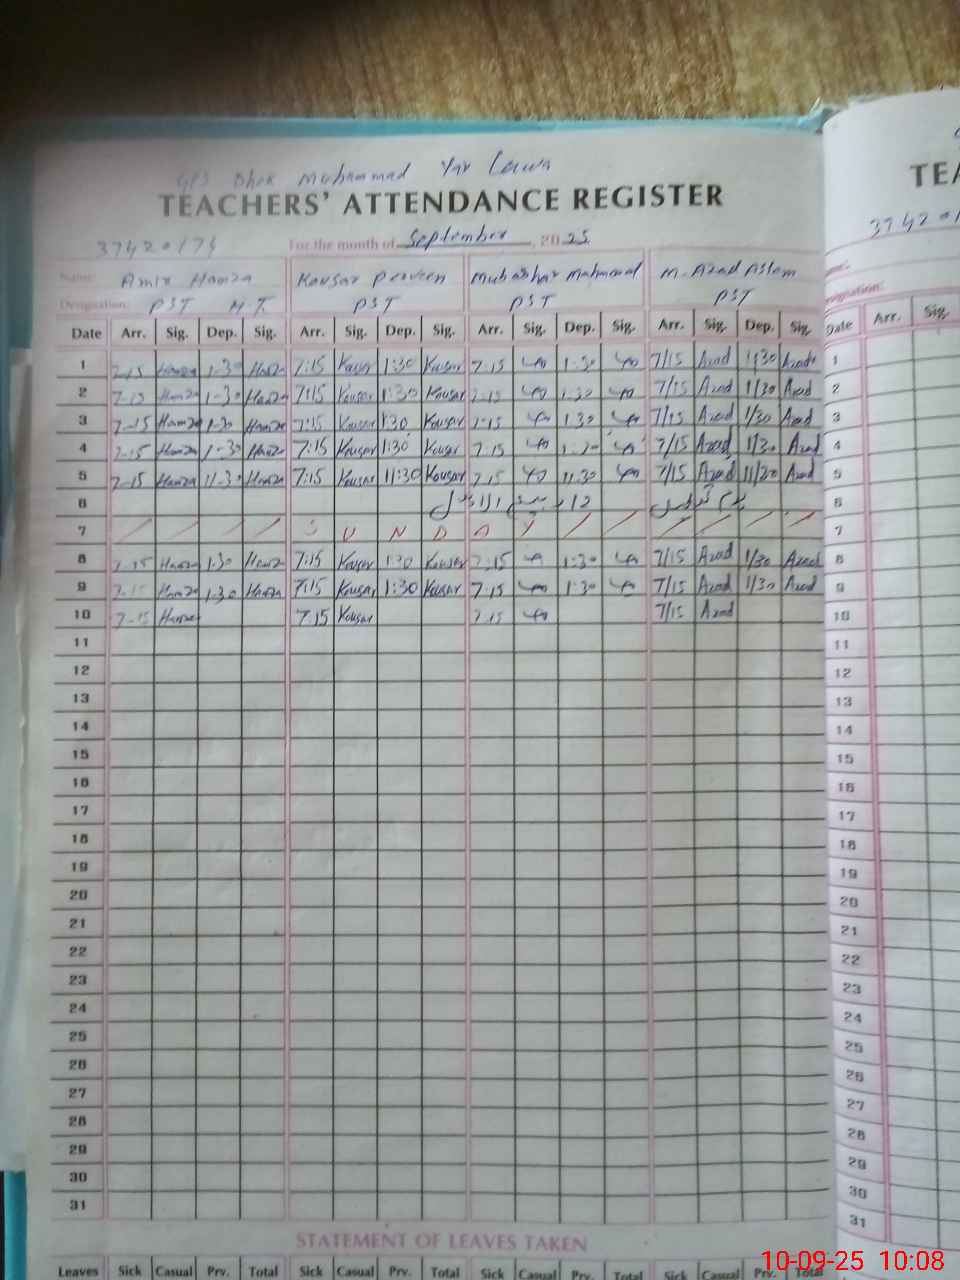 G/S Dhok Muhammad Yar Lawa
TEACHERS' ATTENDANCE REGISTER
TEA
37420174 For the month of September, 2025
Name: Amir Hamza Kousar Perveen Mubashar Mahmood M. Azad Aslam
Designation: PST H.T. PST PST PST
Date Arr. Sig. Dep. Sig. Arr. Sig. Dep. Sig. Arr. Sig. Dep. Sig. Arr. Sig. Dep. Sig. Date Arr. Sig.
1 7-15 Hamza 1-30 Hamza 7:15 Kousar 1:30 Kousar 7.15 1.30 7/15 Azad 1/30 Azad 1
2 7-15 Hamza 1-30 Hamza 7:15 Kousar 1:30 Kousar 7.15 1.30 7/15 Azad 1/30 Azad 2
3 7-15 Hamza 1-30 Hamza 7:15 Kousar 1:30 Kousar 7.15 1.30 7/15 Azad 1/30 Azad 3
4 7-15 Hamza 1-30 Hamza 7:15 Kousar 1:30 Kousar 7.15 1.30 7/15 Azad 1/30 Azad 4
5 7-15 Hamza 11-30 Hamza 7:15 Kousar 11:30 Kousar 7.15 11.30 7/15 Azad 11/30 Azad 5
6 12 ربیع الاول 6
7 S U N D A Y 7
8 7-15 Hamza 1:30 Hamza 7:15 Kousar 1:30 Kousar 7.15 1:30 7/15 Azad 1/30 Azad 8
9 7-15 Hamza 1:30 Hamza 7:15 Kousar 1:30 Kousar 7.15 1:30 7/15 Azad 1/30 Azad 9
10 7-15 Hamza 7:15 Kousar 7.15 7/15 Azad 10
11 11
12 12
13 13
14 14
15 15
16 16
17 17
18 18
19 19
20 20
21 21
22 22
23 23
24 24
25 25
26 26
27 27
28 28
29 29
30 30
31 31
STATEMENT OF LEAVES TAKEN
Leaves Sick Casual Prv. Total Sick Casual Prv. Total Sick Casual Prv. Total Sick Casual Prv. Total
10-09-25 10:08